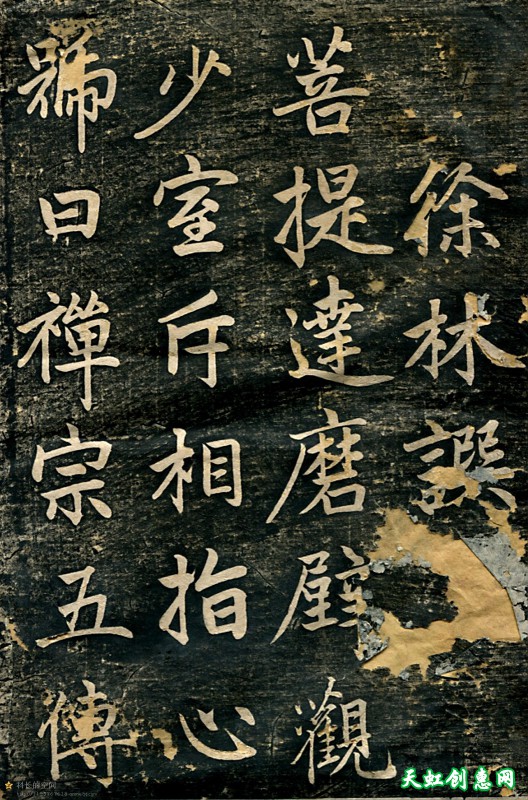 徐林譔
菩提達磨壁觀
少室斥相指心
號曰禪宗五傳
天虹创惠网